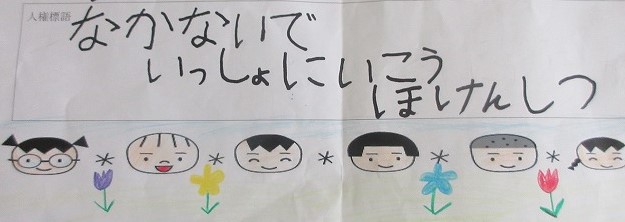 人権標語
なかないで
いっしょにいこう
ほけんしつ